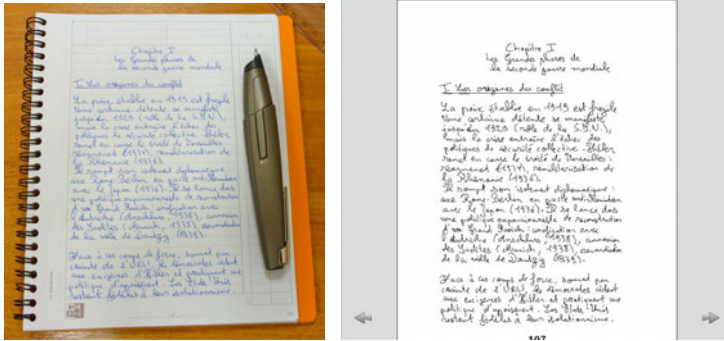 Chapitre I
Les Grandes phases de
la seconde guerre mondiale
I. Les origines du conflit
La paix établie en 1919 est fragile
Une certaine détente se manifeste
jusqu'en 1929 (rôle de la S.D.N.),
mais la crise entraîne l'échec des
politiques de sécurité collective. Hitler
remet en cause le traité de Versailles :
réarmement (1934), remilitarisation de
la Rhénanie (1936).
Il rompt son isolement diplomatique :
axe Rome-Berlin, en pacte antikomintern
avec le Japon (1936). Il se lance dans
une politique expansionniste de reconstruction
d'un Grand Reich : unification avec
l'Autriche (Anschluss, 1938), annexion
des Sudètes (Munich, 1938), revendication
de la ville de Dantzig (1939).
Face à ces coups de force, sourd par
crainte de l'URSS, les démocraties cèdent
aux exigences d'Hitler et pratiquent une
politique d'apaisement. Les Etats-Unis
restent fidèles à leur isolationnisme.
Chapitre I
Les Grandes phases de
la seconde guerre mondiale
I. Les origines du conflit
La paix établie en 1919 est fragile
Une certaine détente se manifeste
jusqu'en 1929 (rôle de la S.D.N.),
mais la crise entraîne l'échec des
politiques de sécurité collective. Hitler
remet en cause le traité de Versailles :
réarmement (1934), remilitarisation de
la Rhénanie (1936).
Il rompt son isolement diplomatique :
axe Rome-Berlin, en pacte antikomintern
avec le Japon (1936). Il se lance dans
une politique expansionniste de reconstruction
d'un Grand Reich : unification avec
l'Autriche (Anschluss, 1938), annexion
des Sudètes (Munich, 1938), revendication
de la ville de Dantzig (1939).
Face à ces coups de force, par
crainte de l'URSS, les démocraties cèdent
aux exigences d'Hitler et pratiquent une
politique d'apaisement. Les Etats-Unis
restent fidèles à leur isolationnisme.
107